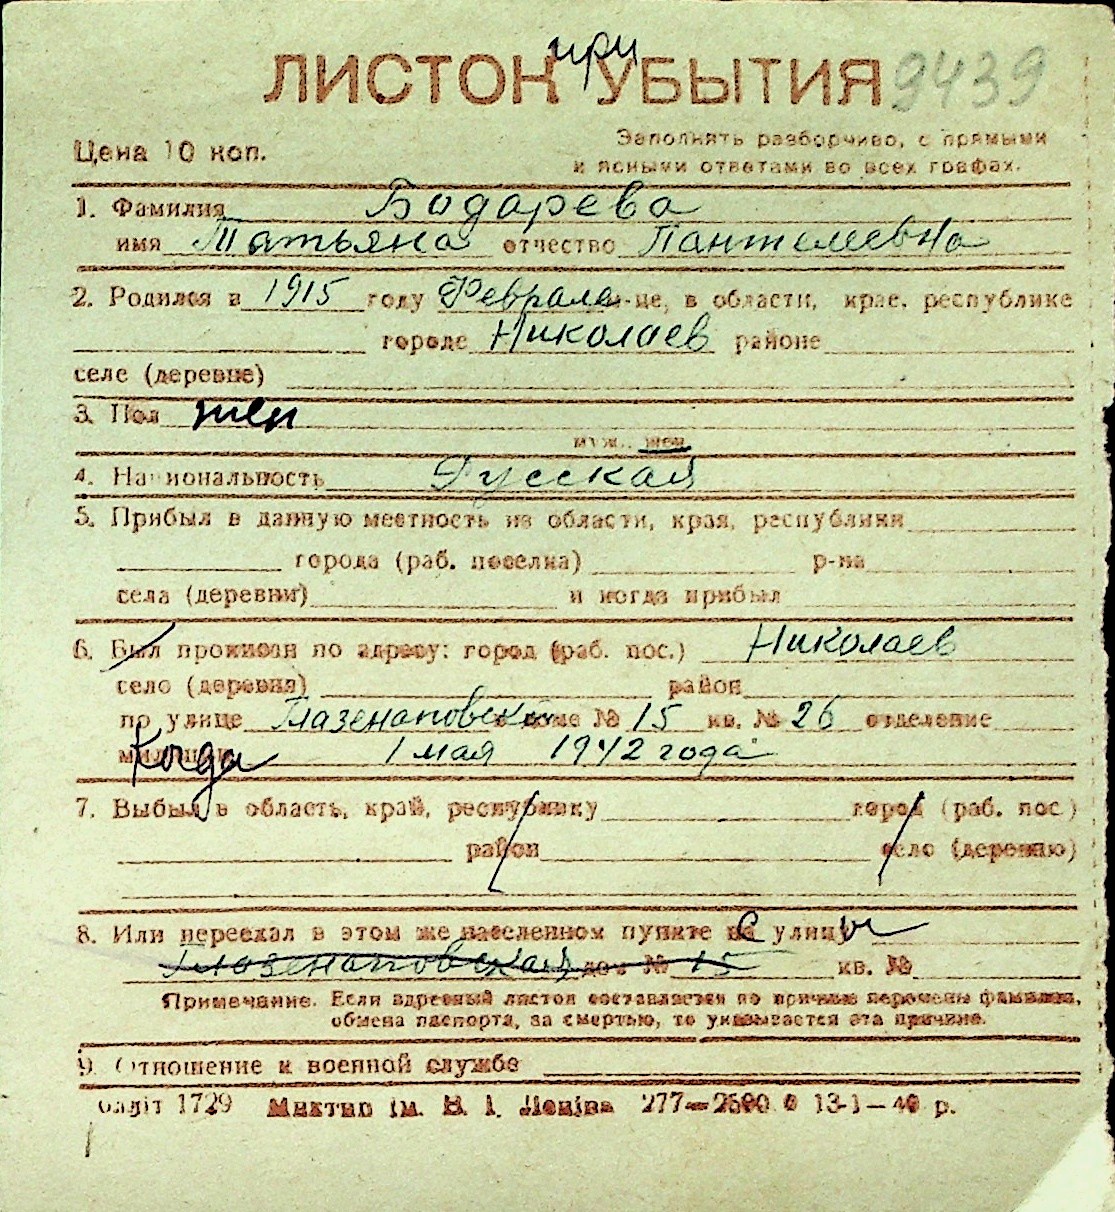 при
ЛИСТОК УБЫТИЯ 9439
Цена 10 коп.
Заполнять разборчиво, с прямыми
и ясными ответами во всех графах.
1. Фамилия Бодарева
имя Татьяна отчество Пантелеевна
2. Родился в 1915 году Феврале м-це, в области, крае, республике
городе Николаев районе
селе (деревне)
3. Пол жен
муж., жен.
4. Национальность Русская
5. Прибыл в данную местность из области, края, республики
города (раб. поселка) р-на
села (деревни) и когда прибыл
6. Был прописан по адресу: город (раб. пос.) Николаев
село (деревня) район
по улице Глазенаповской доме № 15 кв. № 26 отделение
милиции Когда 1 мая 1942 года
7. Выбыл в область, край, республику город (раб. пос.)
район село (деревню)
8. Или переехал в этом же населенном пункте с улицы
Глазенаповская дом № 15 кв. №
Примечание. Если адресный листок составляется по причине перемены фамилии,
обмена паспорта, за смертью, то указывается эта причина.
9. Отношение к военной службе
1729 ім. В. І. Леніна 277— 13-1—40 р.